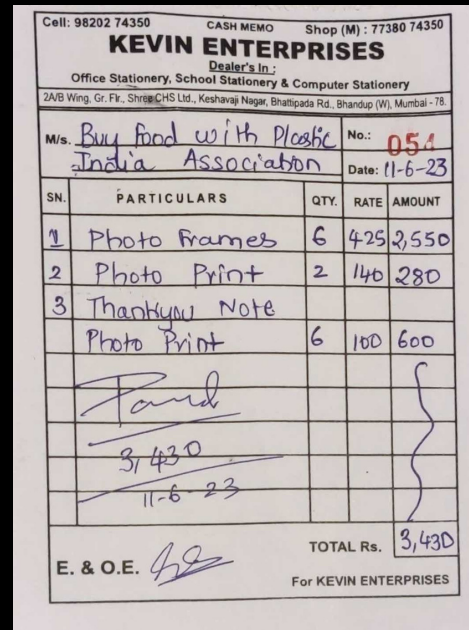 Cell: 98202 74350 CASH MEMO Shop (M) : 77380 74350
KEVIN ENTERPRISES
Dealer's In :
Office Stationery, School Stationery & Computer Stationery
2A/B Wing, Gr. Flr., Shree CHS Ltd., Keshavaji Nagar, Bhattipada Rd., Bhandup (W), Mumbai - 78.
M/s. Buy Food with Plastic No.: 054
India Association Date: 11-6-23
SN. PARTICULARS QTY. RATE AMOUNT
1 Photo Frames 6 425 2,550
2 Photo Print 2 140 280
3 Thankyou Note
Photo Print 6 100 600
Paid
3,430
11-6-23
TOTAL Rs. 3,430
E. & O.E.
For KEVIN ENTERPRISES